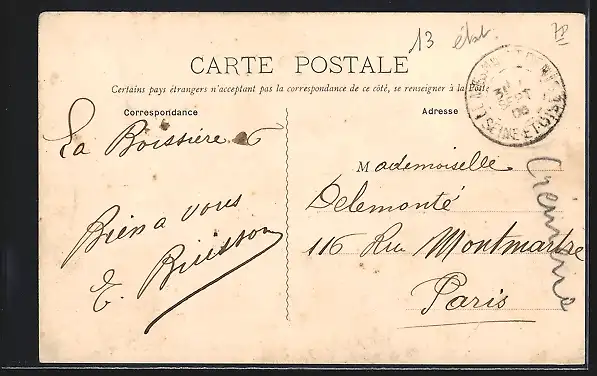 13 état.
CARTE POSTALE
Certains pays étrangers n'acceptant pas la correspondance de ce côté, se renseigner à la Poste
Correspondance
Adresse
La Boissière 6
Mademoiselle
Delemonté
116 Rue Montmartre
Paris
Bien a vous
E. Buisson
SEINE-ET-OISE